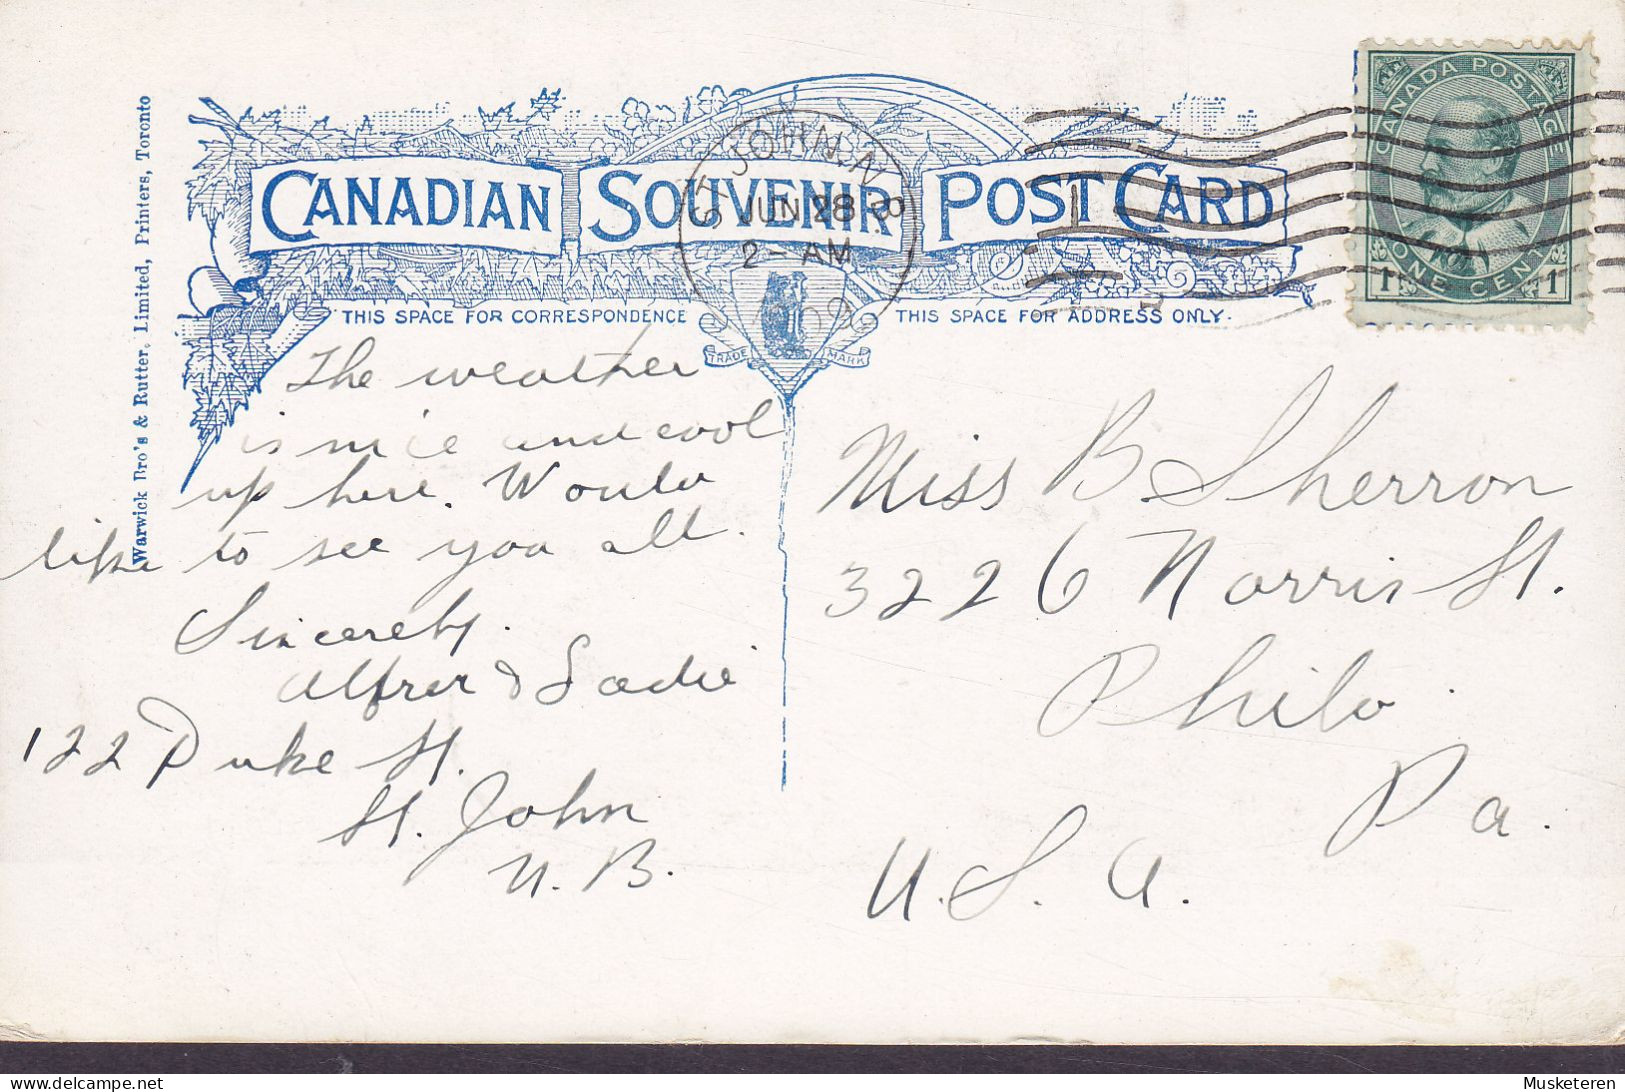 Warwick Bro's & Rutter, Limited, Printers, Toronto
CANADIAN SOUVENIR POST CARD
ST. JOHN, N.B.
JUN 28
2 - AM
1909
1
CANADA POSTAGE
1 ONE CENT 1
THIS SPACE FOR CORRESPONDENCE
THIS SPACE FOR ADDRESS ONLY.
TRADE MARK
The weather
is nice and cool
up here. Would
like to see you all.
Sincerely.
Alfred & Sadie
122 Duke St.
St. John
N. B.
Miss B. Sherron
3226 Norris St.
Phila
Pa.
U. S. A.
Musketeren